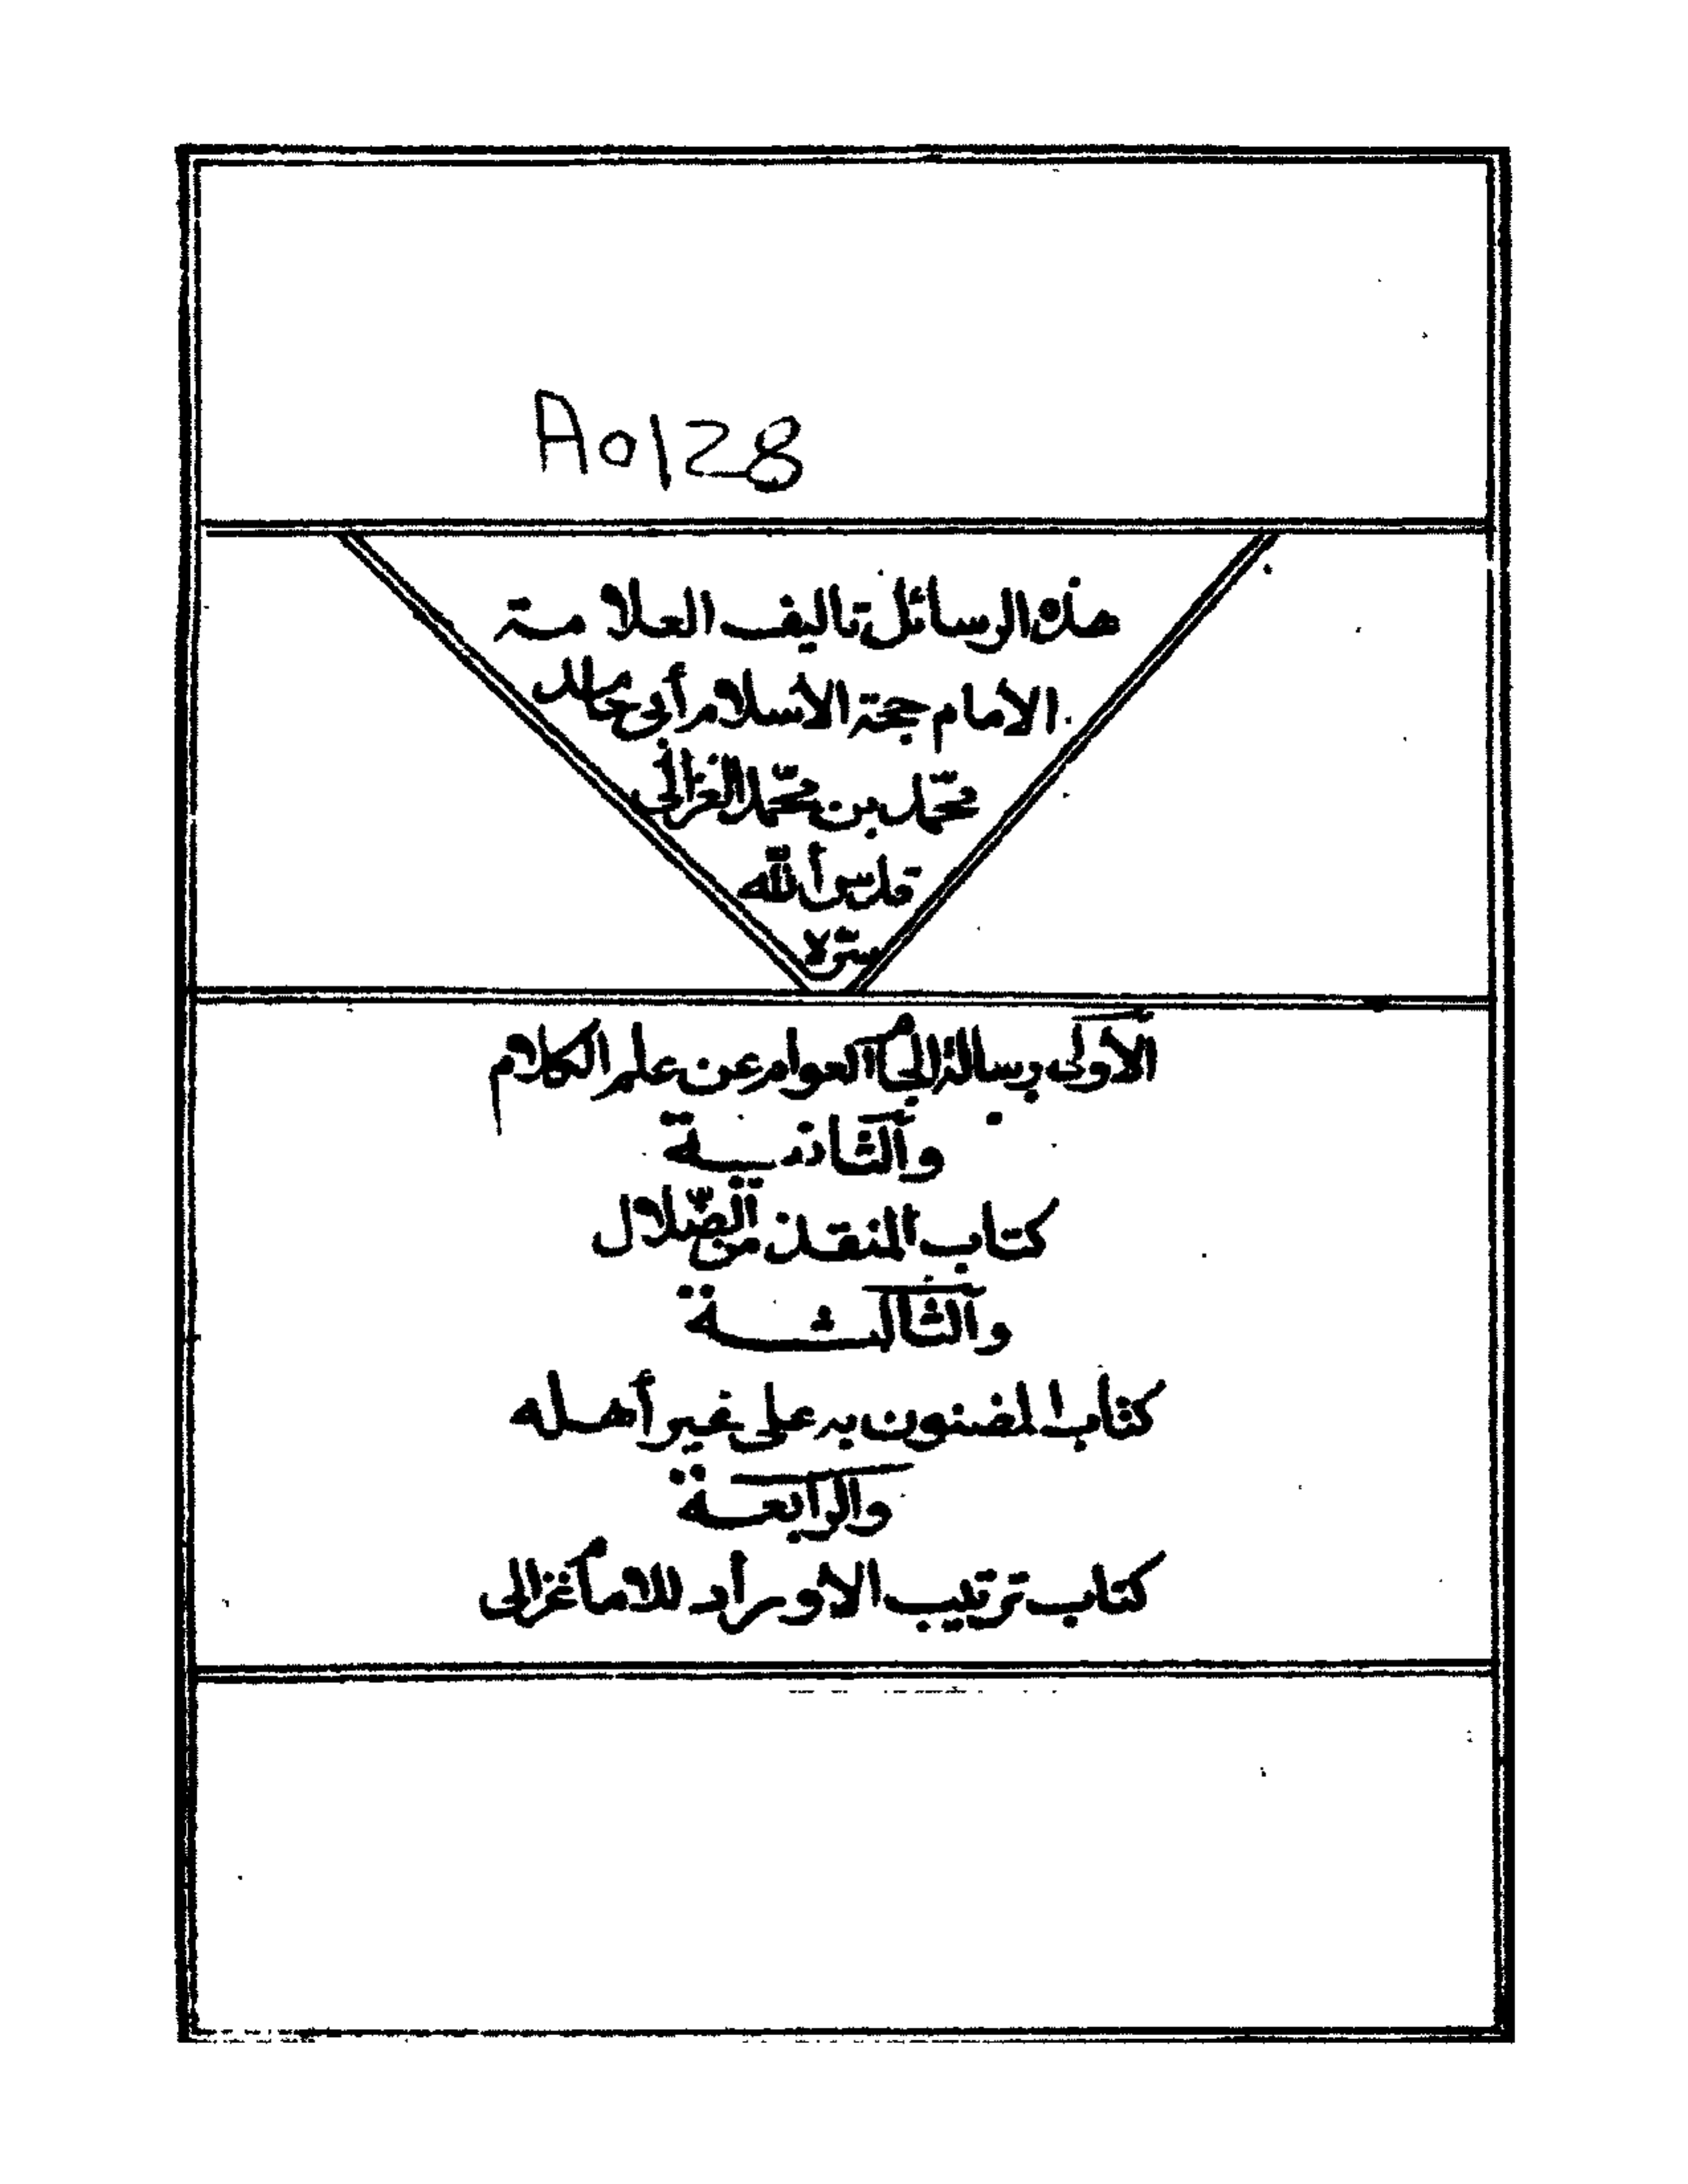 A0128
هذه الرسائل تاليف العلامة
الامام حجة الأسلام أبى حامد
محمّد بن محمّد الغزالى
قدس أللّه
سرّه
الأولى رسالة الجام العوام عن علم الكلام
والثانية
كتاب المنقذ من الضّلال
والثالثة
كتاب المضنون به على غير أهله
والرابعة
كتاب ترتيب الأوراد للامام غزالى